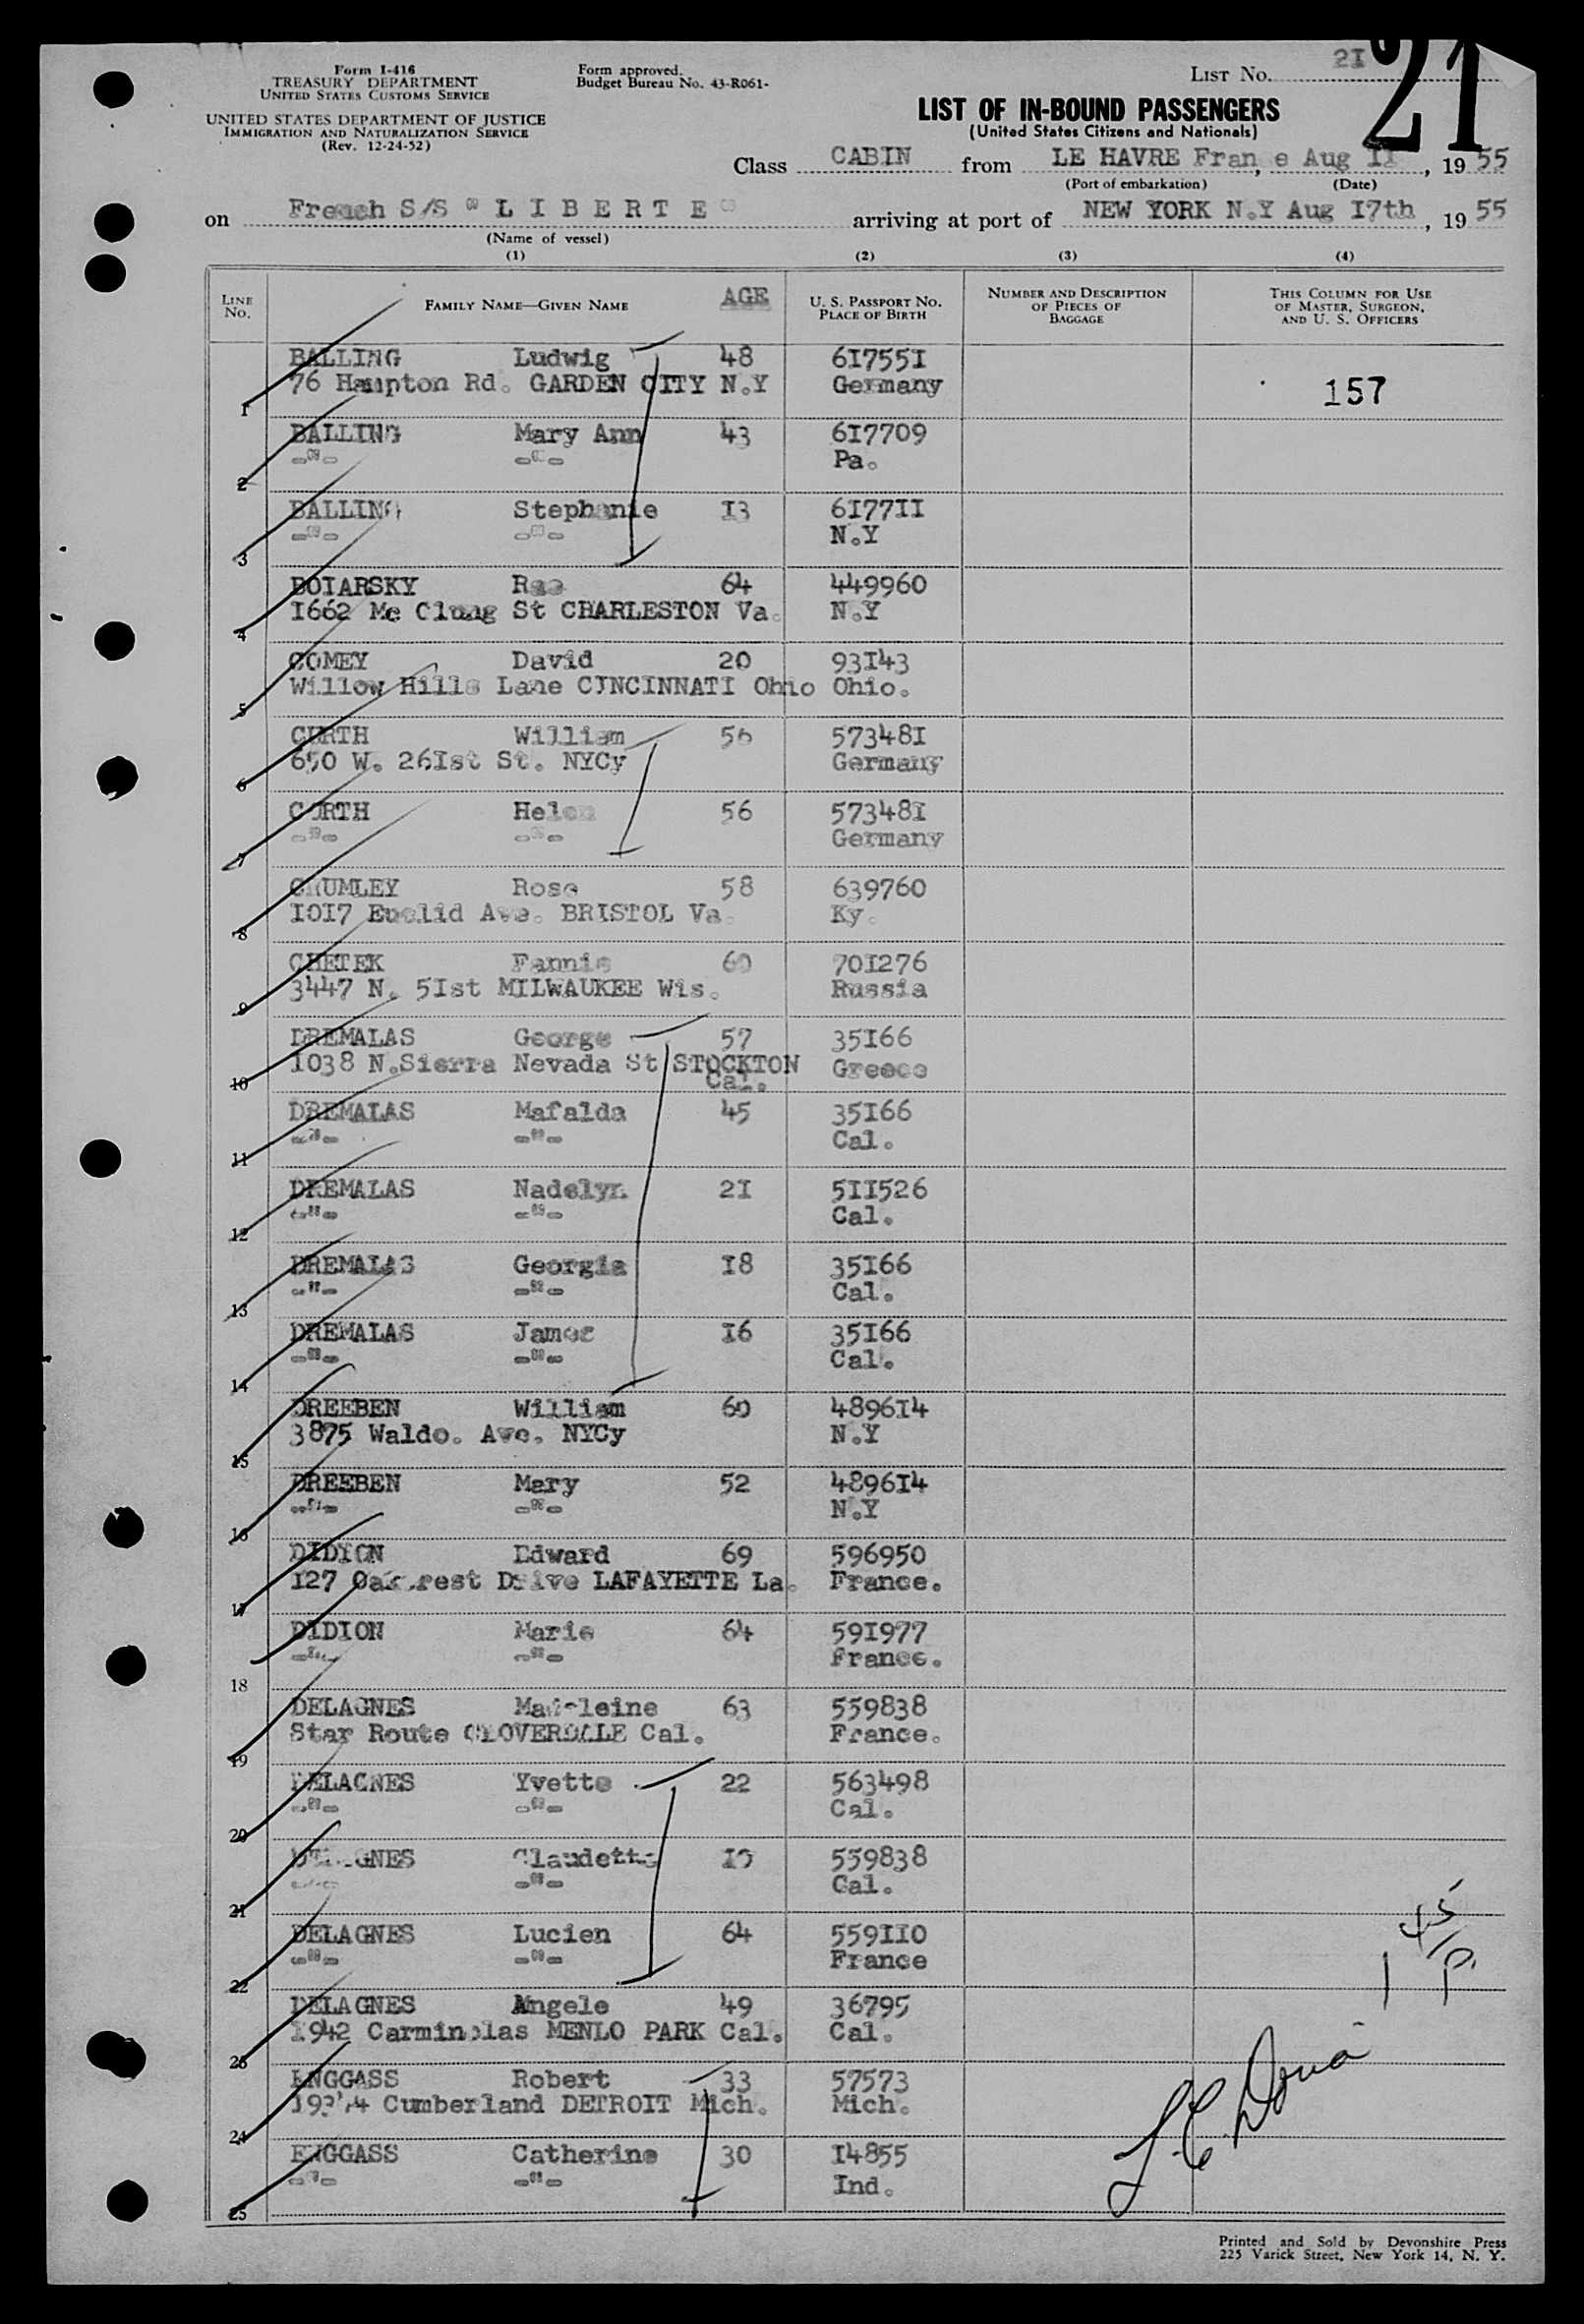 Form I-416
TREASURY DEPARTMENT
UNITED STATES CUSTOMS SERVICE
UNITED STATES DEPARTMENT OF JUSTICE
IMMIGRATION AND NATURALIZATION SERVICE
(Rev. 12-24-52)
Form approved.
Budget Bureau No. 43-R061-
LIST No. 2I
21
LIST OF IN-BOUND PASSENGERS
(United States Citizens and Nationals)
Class CABIN from LE HAVRE Fran e Aug II, 19 55
(Port of embarkation) (Date)
on French S/S " L I B E R T E " arriving at port of NEW YORK N.Y Aug I7th, 19 55
(Name of vessel)
(1) (2) (3) (4)
LINE No. FAMILY NAME—GIVEN NAME AGE U. S. PASSPORT No. PLACE OF BIRTH NUMBER AND DESCRIPTION OF PIECES OF BAGGAGE THIS COLUMN FOR USE OF MASTER, SURGEON, AND U. S. OFFICERS
BALLING Ludwig 48 6I755I
76 Hampton Rd. GARDEN CITY N.Y Germany 157
1
BALLING Mary Ann 43 6I7709
-"- -"- Pa.
2
BALLING Stephanie I3 6I77II
-"- -"- N.Y
3
BOIARSKY Rae 64 449960
I662 Mc Clung St CHARLESTON Va. N.Y
4
COMEY David 20 93I43
Willow Hills Lane CINCINNATI Ohio Ohio.
5
CURTH William 56 57348I
650 W. 26Ist St. NYCy Germany
6
CURTH Helen 56 57348I
-"- -"- Germany
7
CRUMLEY Rose 58 639760
I0I7 Euclid Ave. BRISTOL Va. Ky.
8
CHETEK Fannie 60 70I276
3447 N. 5Ist MILWAUKEE Wis. Russia
9
DREMALAS George 57 35I66
I038 N.Sierra Nevada St STOCKTON Greece
Cal.
10
DREMALAS Mafalda 45 35I66
-"- -"- Cal.
11
DREMALAS Nadelyn 2I 5II526
-"- -"- Cal.
12
DREMALAS Georgia I8 35I66
-"- -"- Cal.
13
DREMALAS James I6 35I66
-"- -"- Cal.
14
DREEBEN William 60 4896I4
3875 Waldo. Ave. NYCy N.Y
15
DREEBEN Mary 52 4896I4
-"- -"- N.Y
16
DIDION Edward 69 596950
I27 Drive LAFAYETTE La. France.
17
DIDION Marie 64 59I977
-"- -"- France.
18
DELAGNES Madeleine 63 559838
Star Route CLOVERDALE Cal. France.
19
DELAGNES Yvette 22 563498
-"- -"- Cal.
20
DELAGNES Claudette 559838
-"- -"- Cal.
21
DELAGNES Lucien 64 559II0
-"- -"- France
22
DELAGNES Angele 49 36795
I942 MENLO PARK Cal. Cal.
23
ENGGASS Robert 33 57573
Cumberland DETROIT Mich. Mich.
24
ENGGASS Catherine 30 I4855
-"- -"- Ind.
25
Printed and Sold by Devonshire Press
225 Varick Street, New York 14, N. Y.